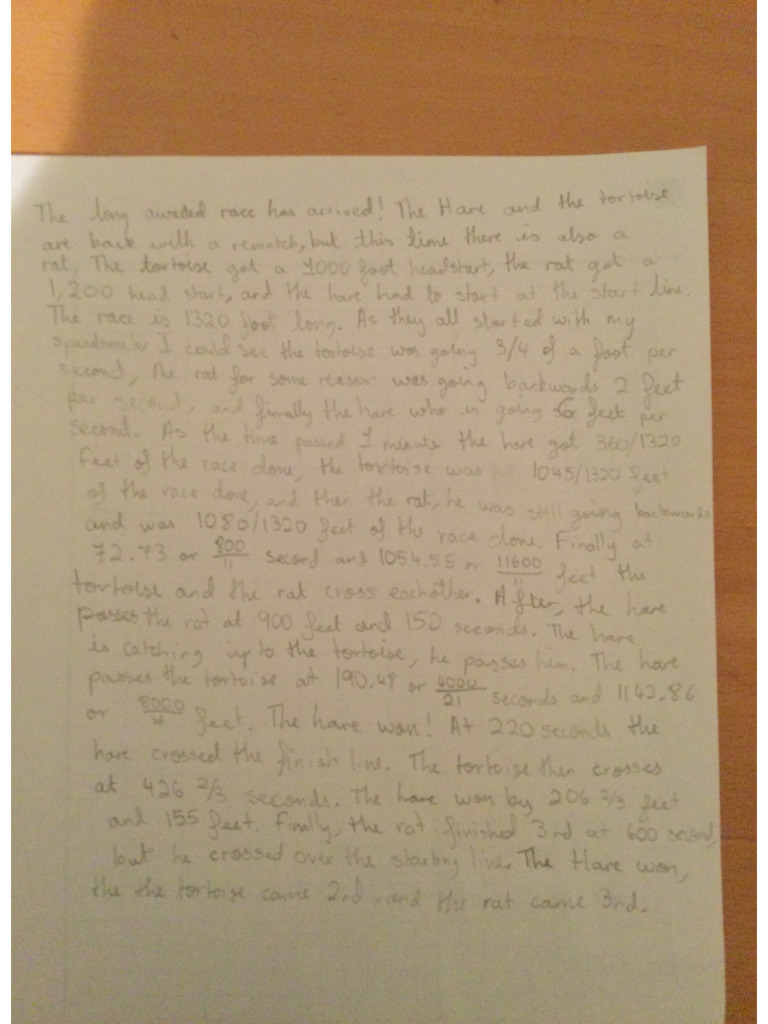 The long awaded race has arrived! The Hare and the tortoise
are back with a rematch, but this time there is also a
rat. The tortoise got a 1000 foot headstart, the rat got a
1,200 head start, and the hare had to start at the start line.
The race is 1320 foot long. As they all started with my
speedometer I could see the tortoise was going 3/4 of a foot per
second, the rat for some reason was going backwards 2 feet
per second, and finally the hare who is going 6 feet per
second. As the time passed 1 minute the hare got 360/1320
feet of the race done, the tortoise was 1045/1320 feet
of the race done, and then the rat, he was still going backwards
and was 1080/1320 feet of the race done. Finally at
72.73 or 800/11 second and 1054.55 or 11600/11 feet the
tortoise and the rat cross eachother. After, the hare
passes the rat at 900 feet and 150 seconds. The hare
is catching up to the tortoise, he passes him. The hare
passes the tortoise at 190.48 or 4000/21 seconds and 1142.86
or 8000/ feet. The hare won! At 220 seconds the
hare crossed the finish line. The tortoise then crosses
at 426 2/3 seconds. The hare won by 206 2/3 feet
and 155 feet. Finally, the rat finished 3rd at 600 second,
but he crossed over the starting line. The Hare won,
the the tortoise came 2nd, and the rat came 3rd.